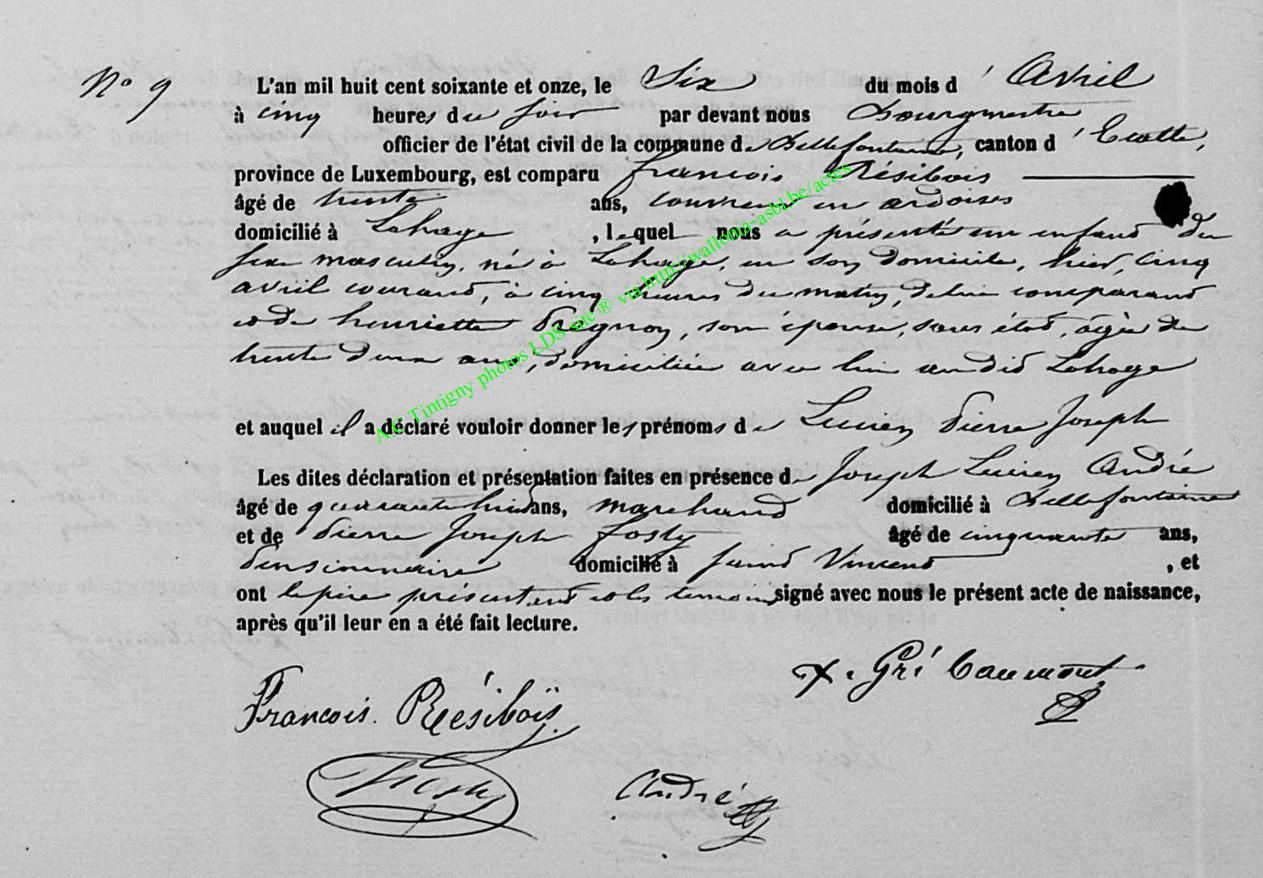 N° 9 L'an mil huit cent soixante et onze, le Six du mois d'Avril
à cinq heures du soir par devant nous Bourgmestre
officier de l'état civil de la commune de Bellefontaine, canton d'Etalle,
province de Luxembourg, est comparu françois Résibois
âgé de trente ans, couvreur en ardoises
domicilié à Lahage, lequel nous a présenté un enfant du
sexe masculin, né à Lahage, en son domicile, hier, cinq
avril courant, à cinq heures du matin, de lui comparant
et de henriette, son épouse, sans état, agée de
trente deux ans, domiciliée avec lui au dit Lahage
et auquel il a déclaré vouloir donner les prénoms de Lucien Pierre Joseph
Les dites déclaration et présentation faites en présence de Joseph Lucien André
âgé de quarante huit ans, marchand domicilié à Bellefontaine
et de Pierre Joseph Fosty âgé de cinquante ans,
Pensionnaire domicilié à Saint Vincent, et
ont le père présentant et les témoins signé avec nous le présent acte de naissance,
après qu'il leur en a été fait lecture.
A.C. Tintigny photos LDS site ® via http://wallonia-asbl.be/actes
François Résibois
Fosty
André